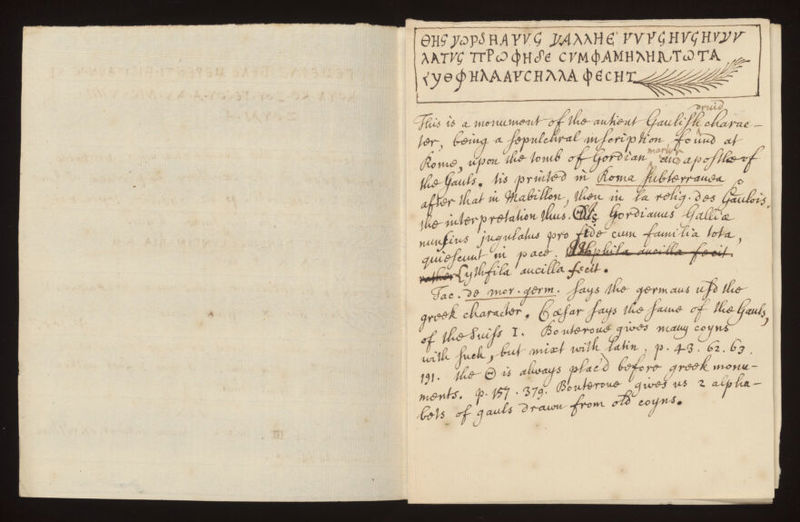 ΘΗϚ ΥΩΡΔΗΑΥΥϚ ΥΑΛΛΗЄ ΥΥΥϚΗΥϚΗΥΥΥ
ΛΑΤΥϚ ΠΡΩΦΗΔΕ ϹΥΜΦΑΜΗΛΗΑ ΤΩΤΑ
ϹΥΘΦΗΛΑΑΥϹΗΛΛΑ ΦΕϹΗΤ
This is a monument of the antient Gaulish druid charac-
ter, being a sepulchral inscription found at
Rome, upon the tomb of Gordian martyr apostle of
the Gauls. tis printed in Roma subterranea
after that in Mabillon, then in la relig. des Gaulois.
the interpretation thus. Gordianus Galliæ
nunsius jugulatus pro fide cum familia tota,
quiescunt in pace. ancilla fecit
rather Cythfila ancilla fecit.
Tac. de mor. germ. says the germans us'd the
greek character. Cæsar says the same of the Gauls,
of the Suiss I. Bouteroue gives many coyns
with such, but mixt with latin. p. 43. 62. 63.
191. the Θ is always plac'd before greek monu-
ments. p. 157. 379. Bouteroue gives us 2 alpha-
bets of gauls drawn from old coyns.